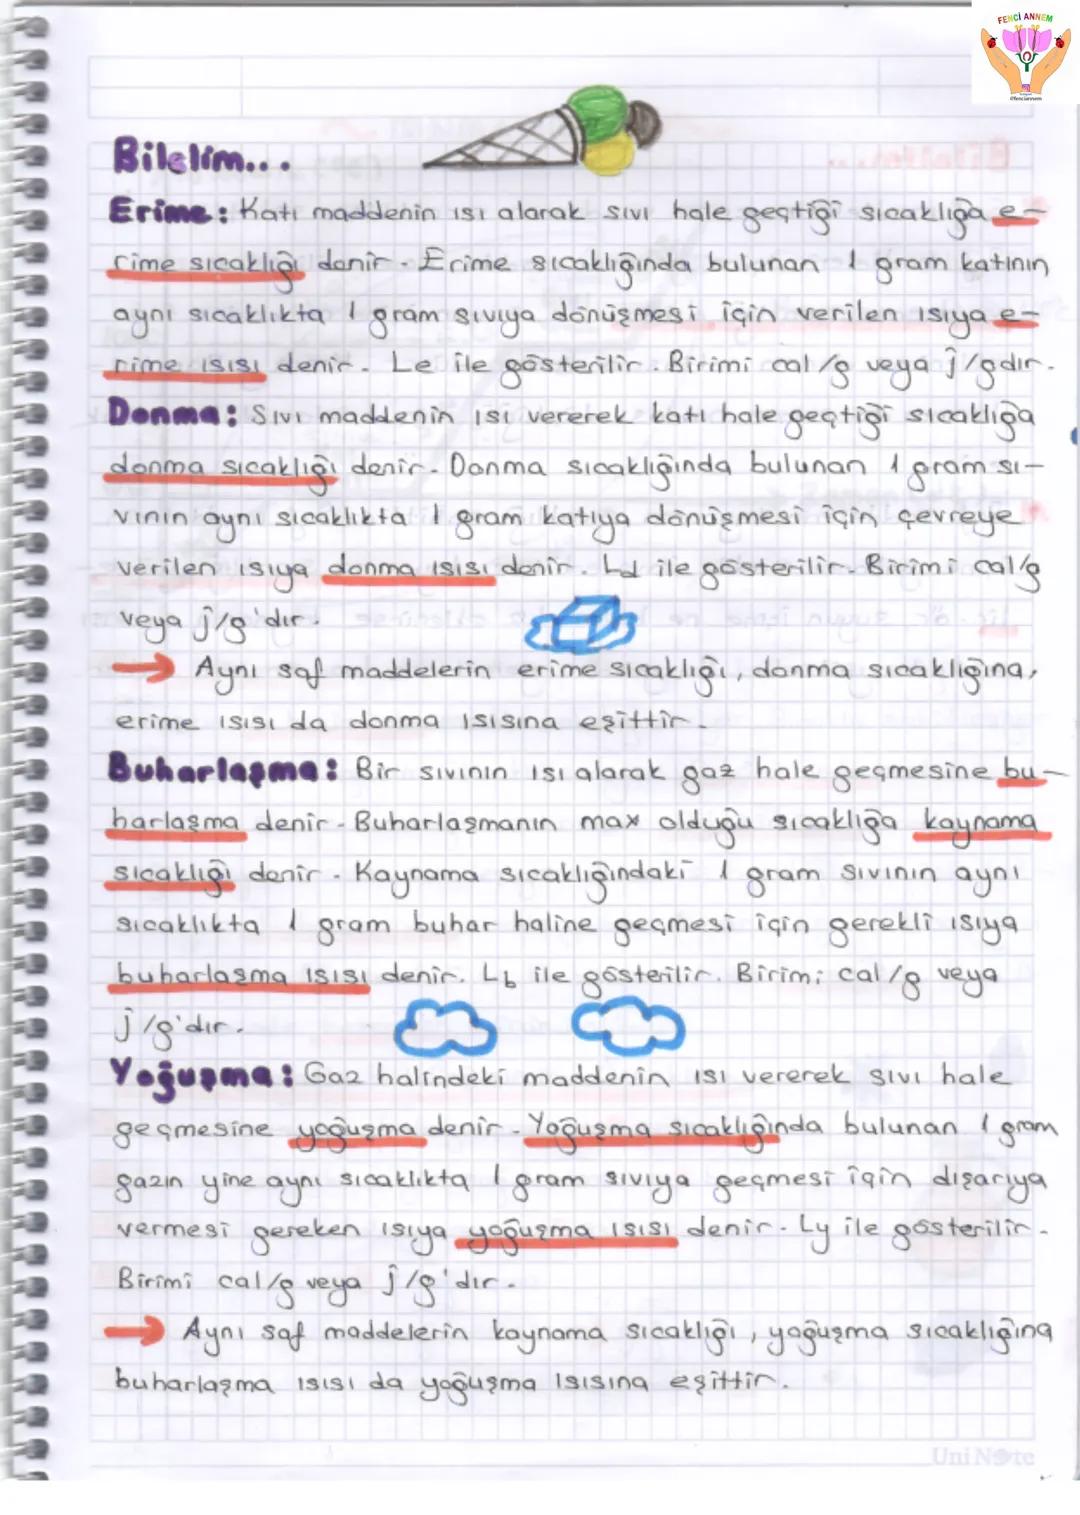 FENCİ ANNEM
@fenciannem
Bilelim...
Erime: Katı maddenin ısı alarak sıvı hale geçtiği sıcaklığa e-
rime sıcaklığı denir. Erime sıcaklığında bulunan 1 gram katının
aynı sıcaklıkta 1 gram sıvıya dönüşmesi için verilen ısıya e-
rime ısısı denir. Le ile gösterilir. Birimi cal/g veya j/gdır.
Donma: Sıvı maddenin ısı vererek katı hale geçtiği sıcaklığa
donma sıcaklığı denir. Donma sıcaklığında bulunan 1 gram sı-
vının aynı sıcaklıkta 1 gram katıya dönüşmesi için çevreye
verilen ısıya donma ısısı denir. Ld ile gösterilir. Birimi cal/g
veya j/g'dır.
→ Aynı saf maddelerin erime sıcaklığı, donma sıcaklığına,
erime ısısı da donma ısısına eşittir.
Buharlaşma: Bir sıvının ısı alarak gaz hale geçmesine bu-
harlaşma denir. Buharlaşmanın max olduğu sıcaklığa kaynama
sıcaklığı denir. Kaynama sıcaklığındaki 1 gram sıvının aynı
sıcaklıkta 1 gram buhar haline geçmesi için gerekli ısıya
buharlaşma ısısı denir. Lb ile gösterilir. Birimi cal/g veya
j/g'dır.
Yoğuşma: Gaz halindeki maddenin ısı vererek sıvı hale
geçmesine yoğuşma denir. Yoğuşma sıcaklığında bulunan 1 gram
gazın yine aynı sıcaklıkta 1 gram sıvıya geçmesi için dışarıya
vermesi gereken ısıya yoğuşma ısısı denir. Ly ile gösterilir.
Birimi cal/g veya j/g'dır.
→ Aynı saf maddelerin kaynama sıcaklığı, yoğuşma sıcaklığına
buharlaşma ısısı da yoğuşma ısısına eşittir.
Uni Note